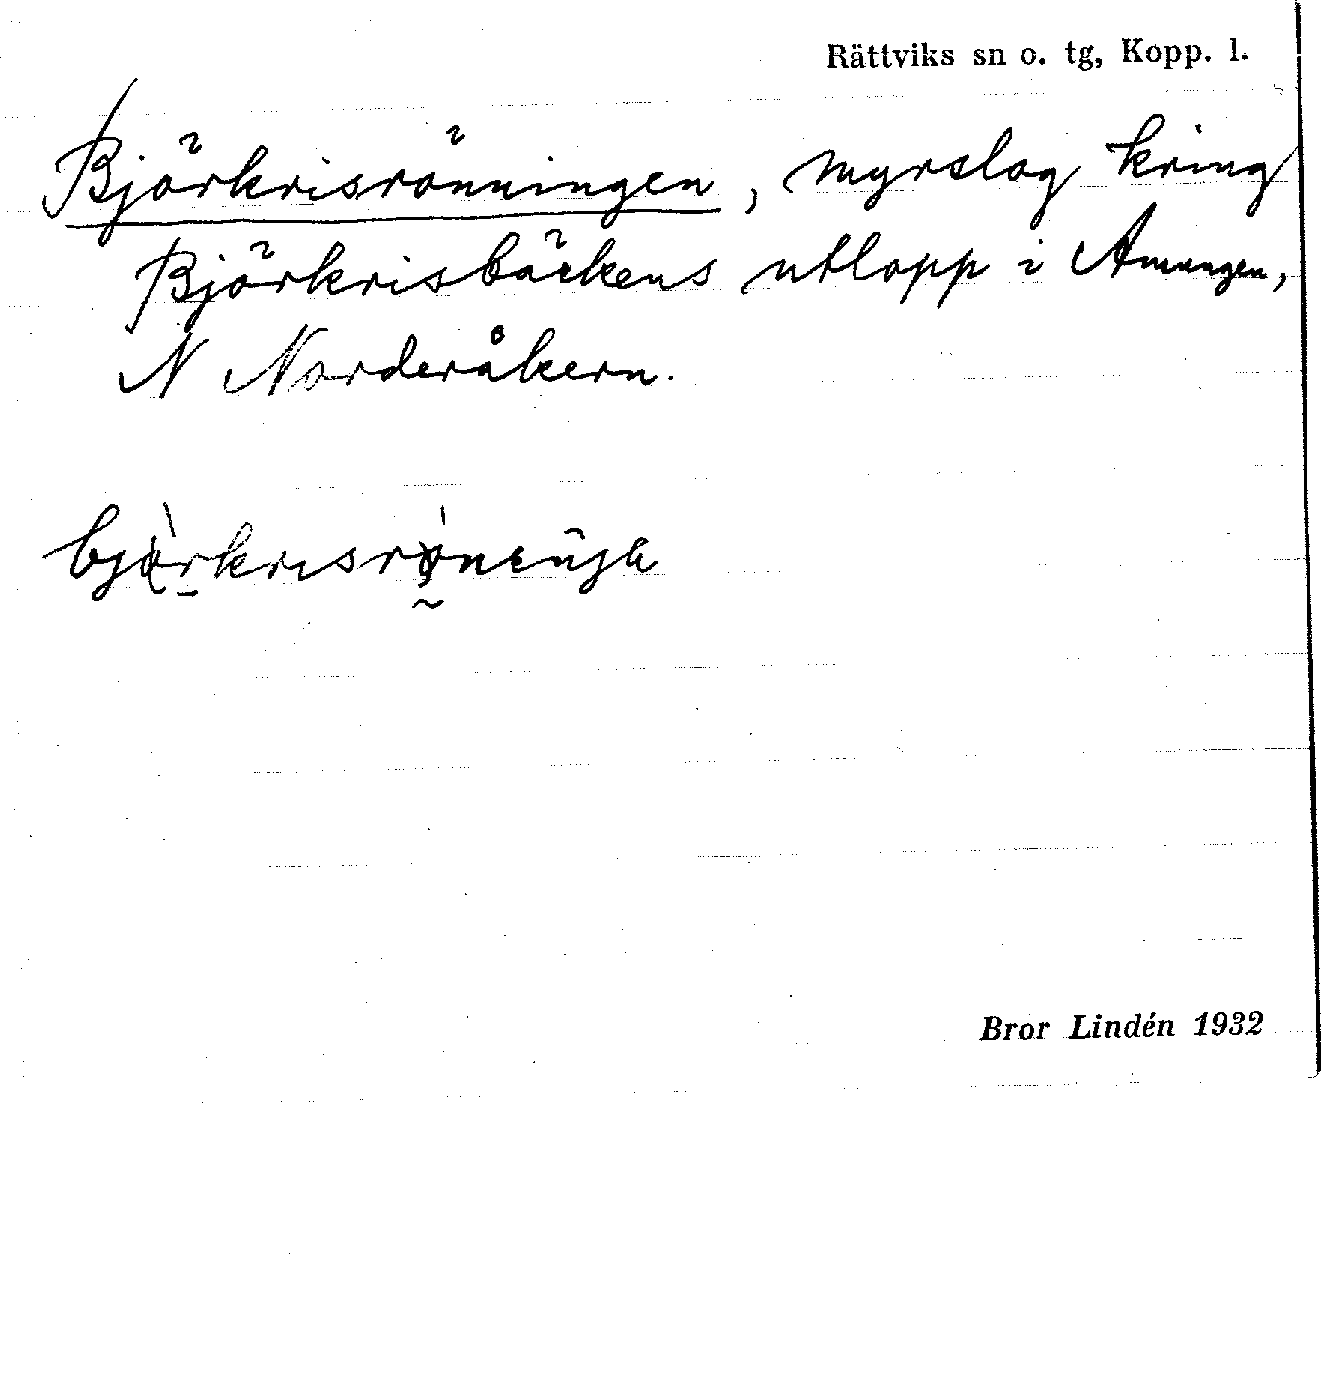 Rättviks sn o. tg, Kopp. l.
Björkrisrönningen, myrslog kring
Björkrisbäckens utlopp i Amungen,
N Norderåkern.
Bror Lindén 1932